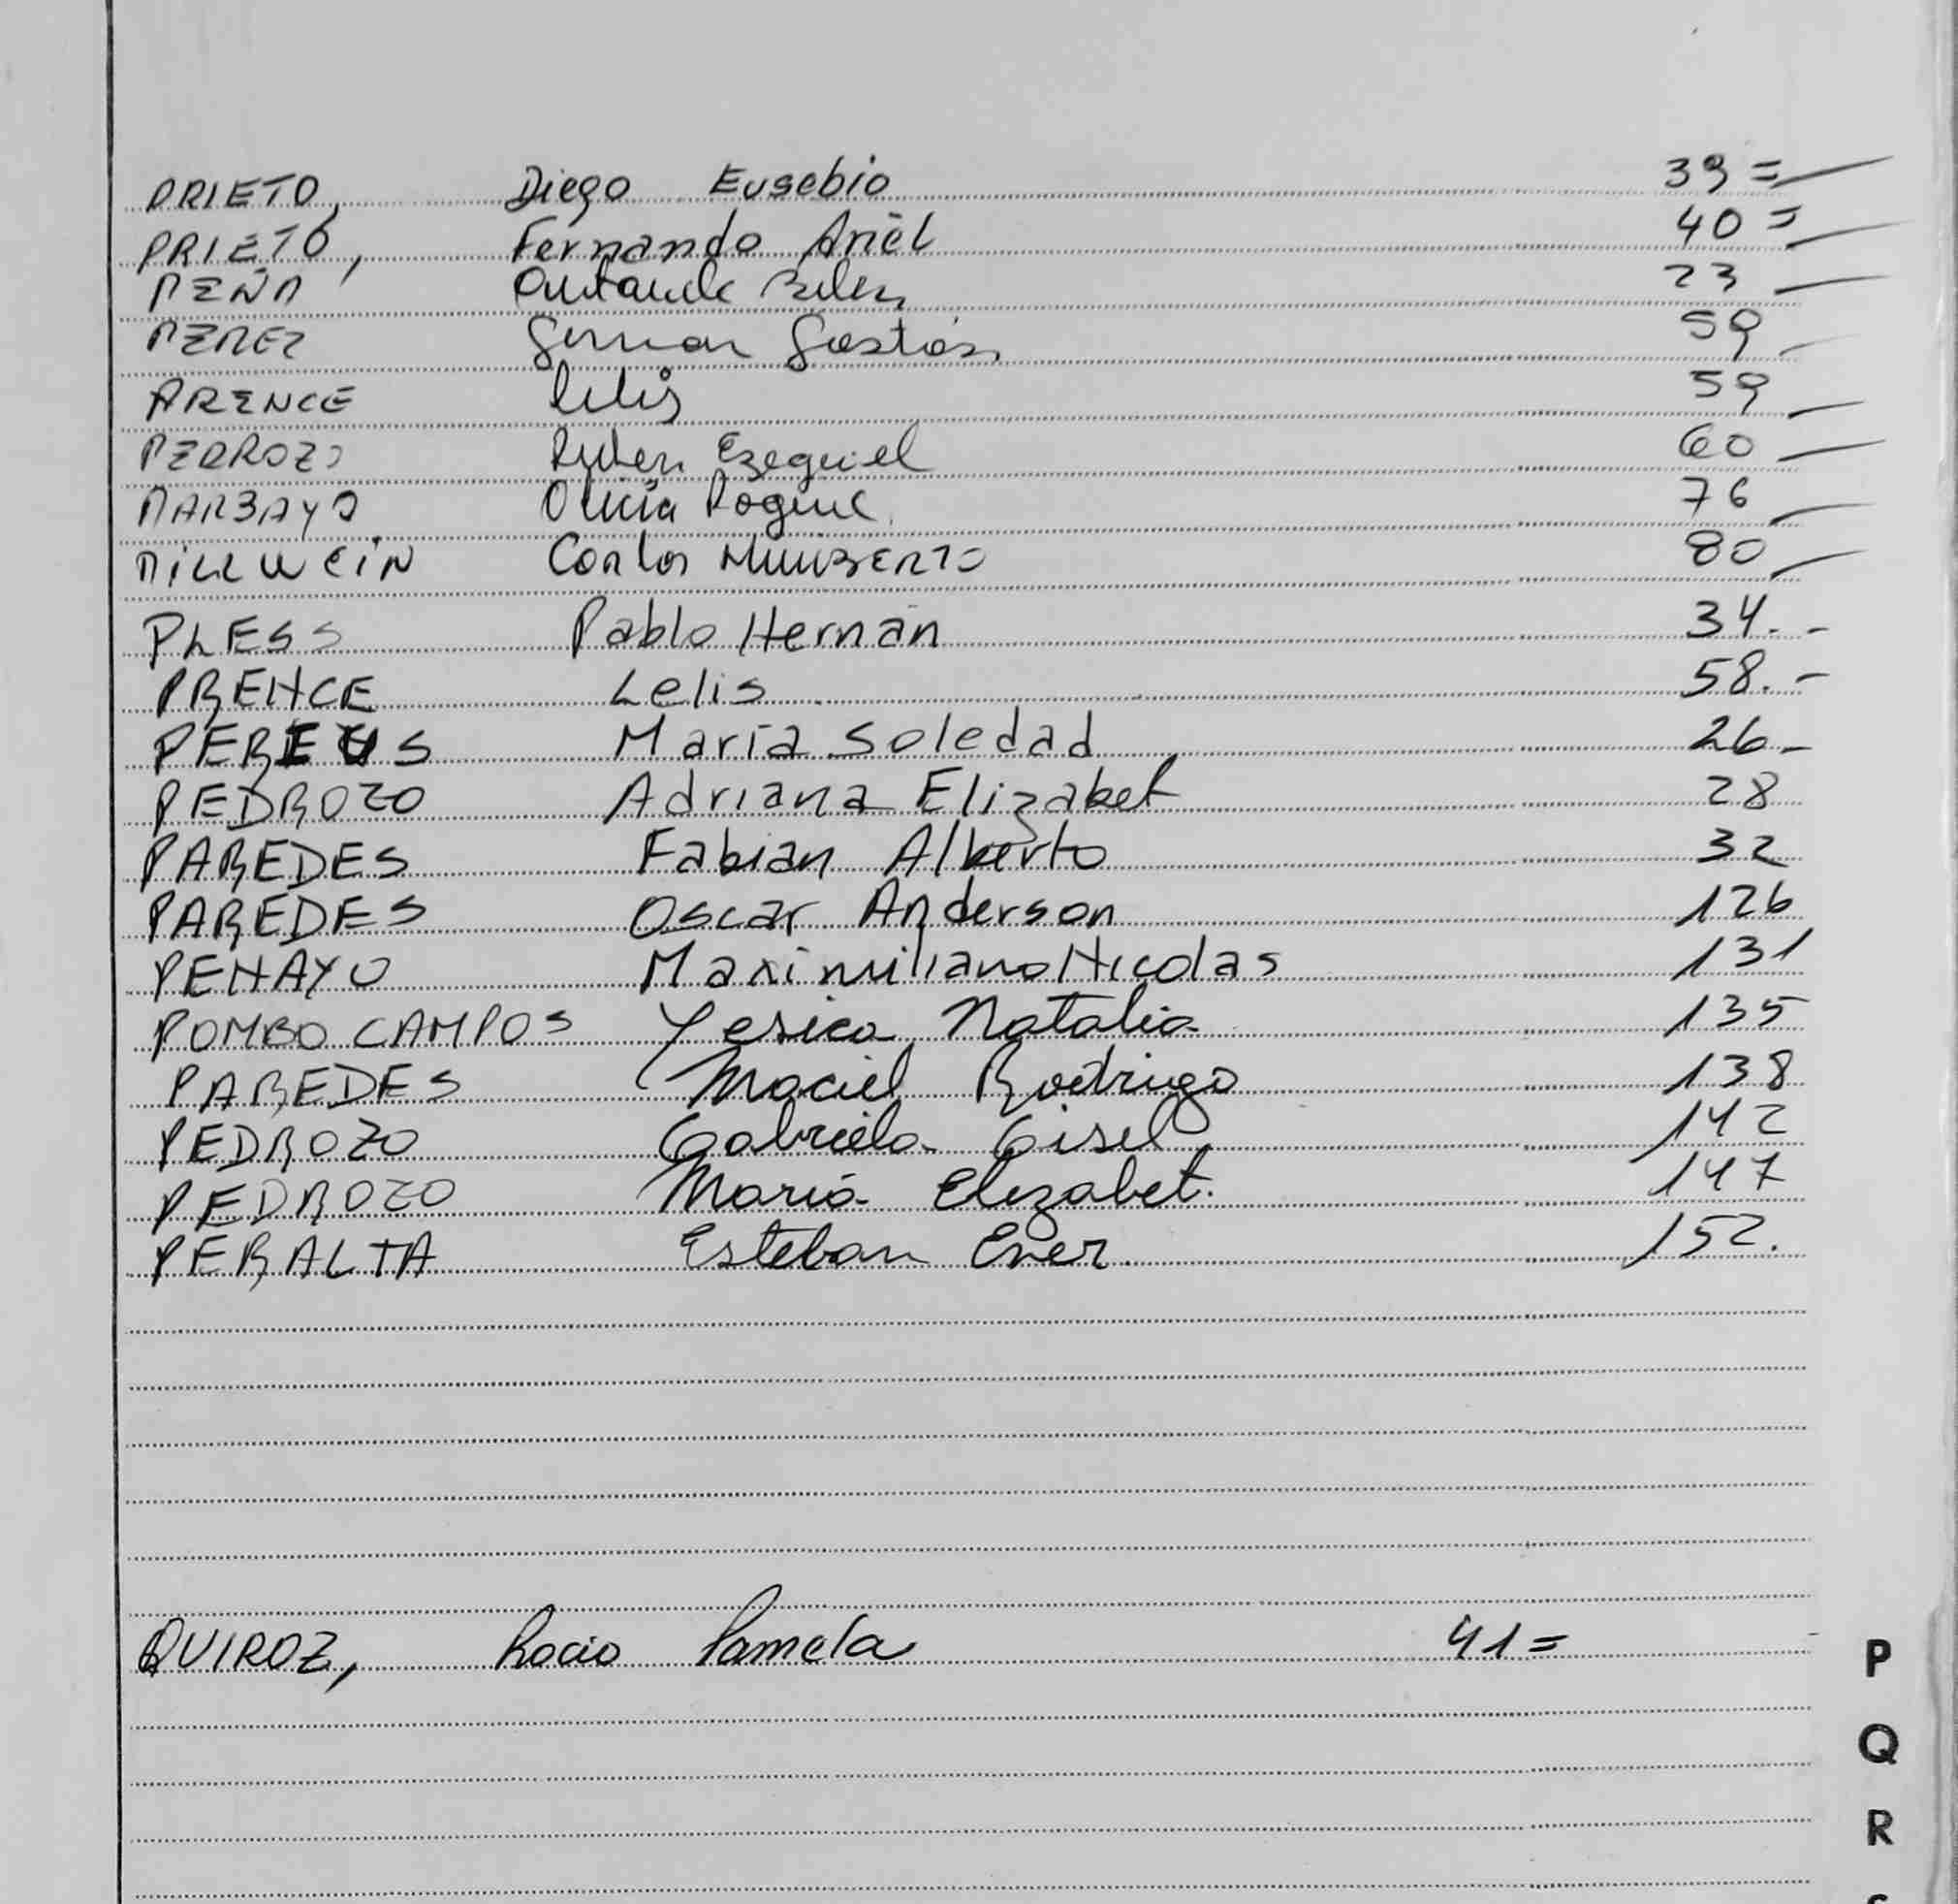 PRIETO, Diego Eusebio 39 =
PRIETO, Fernando Ariel 40 =
PEÑA Belen 23
PEREZ German Gastón 59
PRENCE Lelis 59
PEDROZO Ruben Ezequiel 60
PARBAYO Roque 76
Carlos HUMBERTO 80
PLESS Pablo Hernán 34.-
PRENCE Lelis 58.-
María Soledad 26-
PEDROZO Adriana Elizabet 28
PAREDES Fabian Alberto 32
PAREDES Oscar Anderson 126
PENAYO Maximiliano Nicolas 131
POMBO CAMPOS Yesica Natalia 135
PAREDES Maciel Rodrigo 138
PEDROZO Gabriela Gisel 142
PEDROZO María Elizabet. 147
PERALTA Esteban Ever 152.
QUIROZ, Rocio Pamela 41 =
P
Q
R